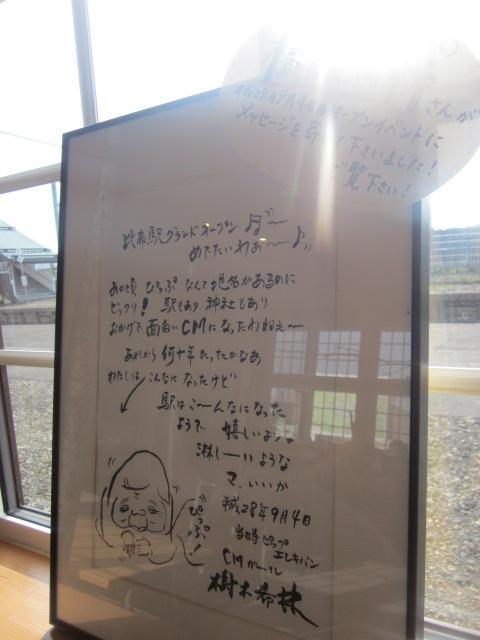 さんが
平成28年9月4日のオープンイベントに
メッセージを寄せて下さいました!
ご覧下さい!
比布駅グランドオープン
めでたいわぉ〜♪
あの頃 ぴっぷなんて地名があるのに
ビックリ! 駅もあり 神社もあり
おかげで 面白いCMになったわねぇ〜
あれから 何十年たったかなあ
わたしは こんなになったけど
駅はこ〜んなになった
ようで 嬉しいような
淋しーいような
マ、いいか
平成28年9月4日
当時 ピップ
エレキバン
CMガール
樹木希林
ぴっぷ!